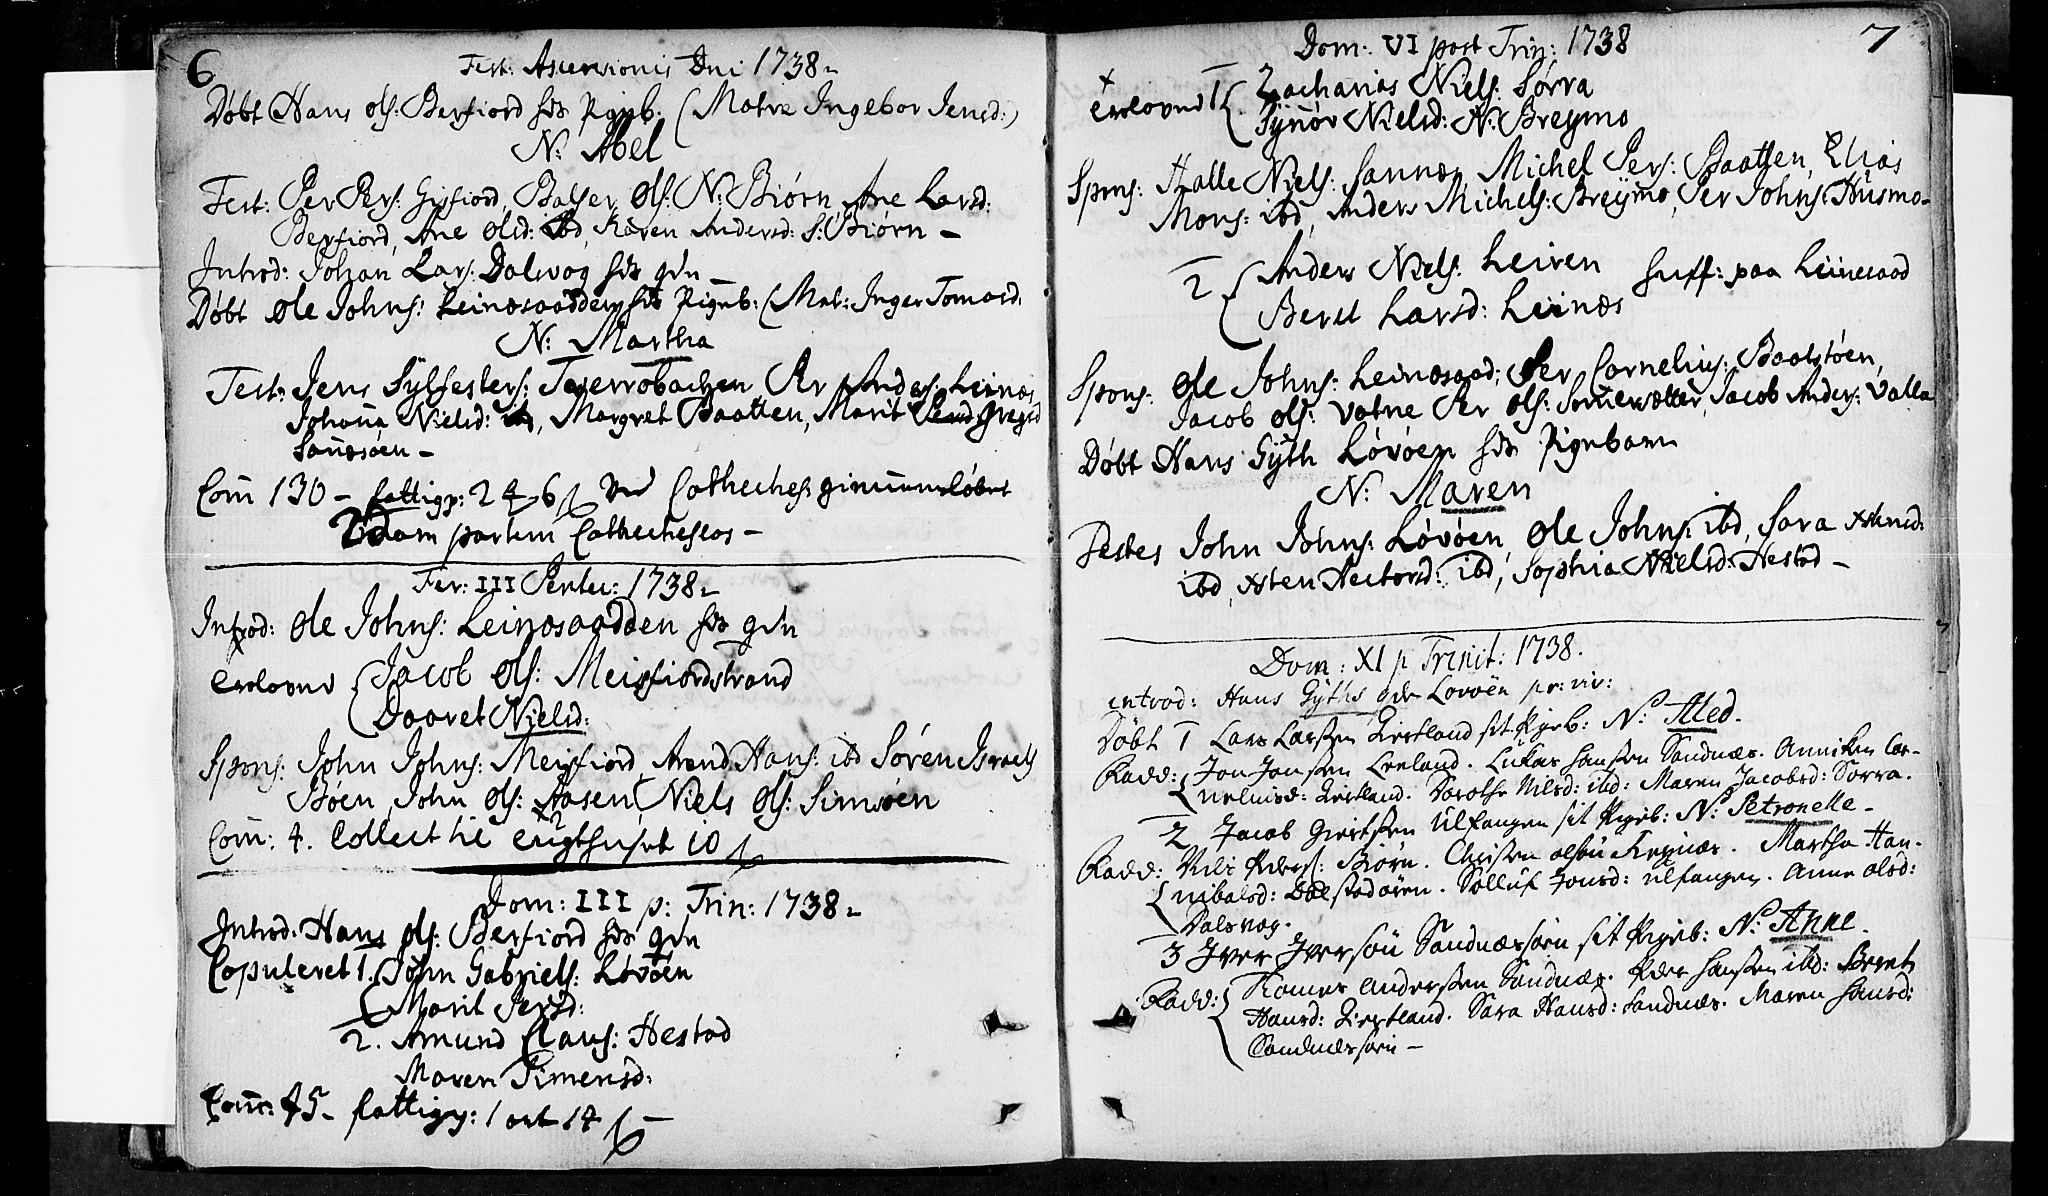 6
Fest: Ascensionis Dni 1738
Døbt Hans Ols: Berfiord hds Pigeb: (Matre Ingebor Jensd:)
N: Abel
Test: Per Pers: Gisfiord, Balser Ols: N: Biørn, Ane Larsd:
Berfiord, Ane Olsd: Ibd, Karen Andersd: S: Biørn –
Introd: Johan Lars: Dalsvog hds qvn –
Døbt Ole Johns: Leinesaadden hds Pigeb: (Mat: Inger Tomasd:
N: Martha
Test: Jens Sylfesters: Per Anders: Leinæs
Johana Nielsd: ibd, Margret Baatten, Marit
Sanesøen –
Com 130 – fattigp: 2 4 6 ß Ved Catheches:
2dam partem Catecheseos –
Fer: III Pentec: 1738
Introd: Ole Johns: Leinesaadden hds qvn
Trolovet Jacob Ols: Meisfiordstrand
Daaret Nielsd:
Spons: John Johns: Meisfiord, Arend Hans: ibd Søren Israels
Bøen, John Ols: Aasen, Niels Ols: Simsøen
Com: 4. Collect til 10 ß
Dom: III p: Trin: 1738
Introd: Hans Ols: Berfiord hds qvn
Copuleret 1. John Gabriels: Løvøen
Marit Persd:
2. Amund Claus: Hestad
Maren Simensd:
Com: 45 – fattigp: 1 ort 14 ß –
7
Dom: VI post Trin: 1738
Trolovet 1 Zacharias Niels: Sørra
Synør Nielsd: N: Breymo
Spons: Halle Niels: Sannæs, Michel Pers: Baatten, Elias
Mons: ibd, Anders Michels: Breymo, Per Johns: Husmo –
2 Anders Niels: Leiren paa Leinesaad
Beret Larsd: Leinæs
Spons: Ole Johns: Leinesaad, Per Cornelius: Baatstøen,
Jacob Ols: Vatne Per Ols: Somersætter, Jacob Anders: Valla
Døbt Hans Gyth Løvøen hds Pigebarn
N: Maren
Testes John Johns: Løvøen, Ole Johns: ibd, Sara Xstensd:
ibd, Xsten Hectorsd: ibd, Sophia Nielsd: Hestad –
Dom: XI p Trinit: 1738.
introd: Hans Gyths qde Lovøen pr: viv:
Døbt 1 Lars Larssen Zertland sit Pigeb: N: Aled.
Fadd: Jon Jonssen Leeland. Lukas Hanssen Sandnæs. Anniken Cor-
nelusd: Zertland. Dorothe Nilsd: ibd: Maren Jacobsd: Sørra.
2 Jacob Giertssen Ulfangen sit Pigeb: N: Petronelle –
Fadd: Nils Peders: Biørn. Christen Olsøn Kegnæs. Martha Han-
nibalsd: Dalstadøren. Solluf Jonsd: Ulfangen. Anne Olsd:
Dalsvog.
3 Iver Iversøn Sandnæssøen sit Pigeb: N: Anne.
Fadd: Tomes Anderssen Sandnæs. Peder Hanssen ibd: Beret
Hansd: Zertland. Sara Hansd: Sandnæs. Maren Hansd:
Sandnæssøen –